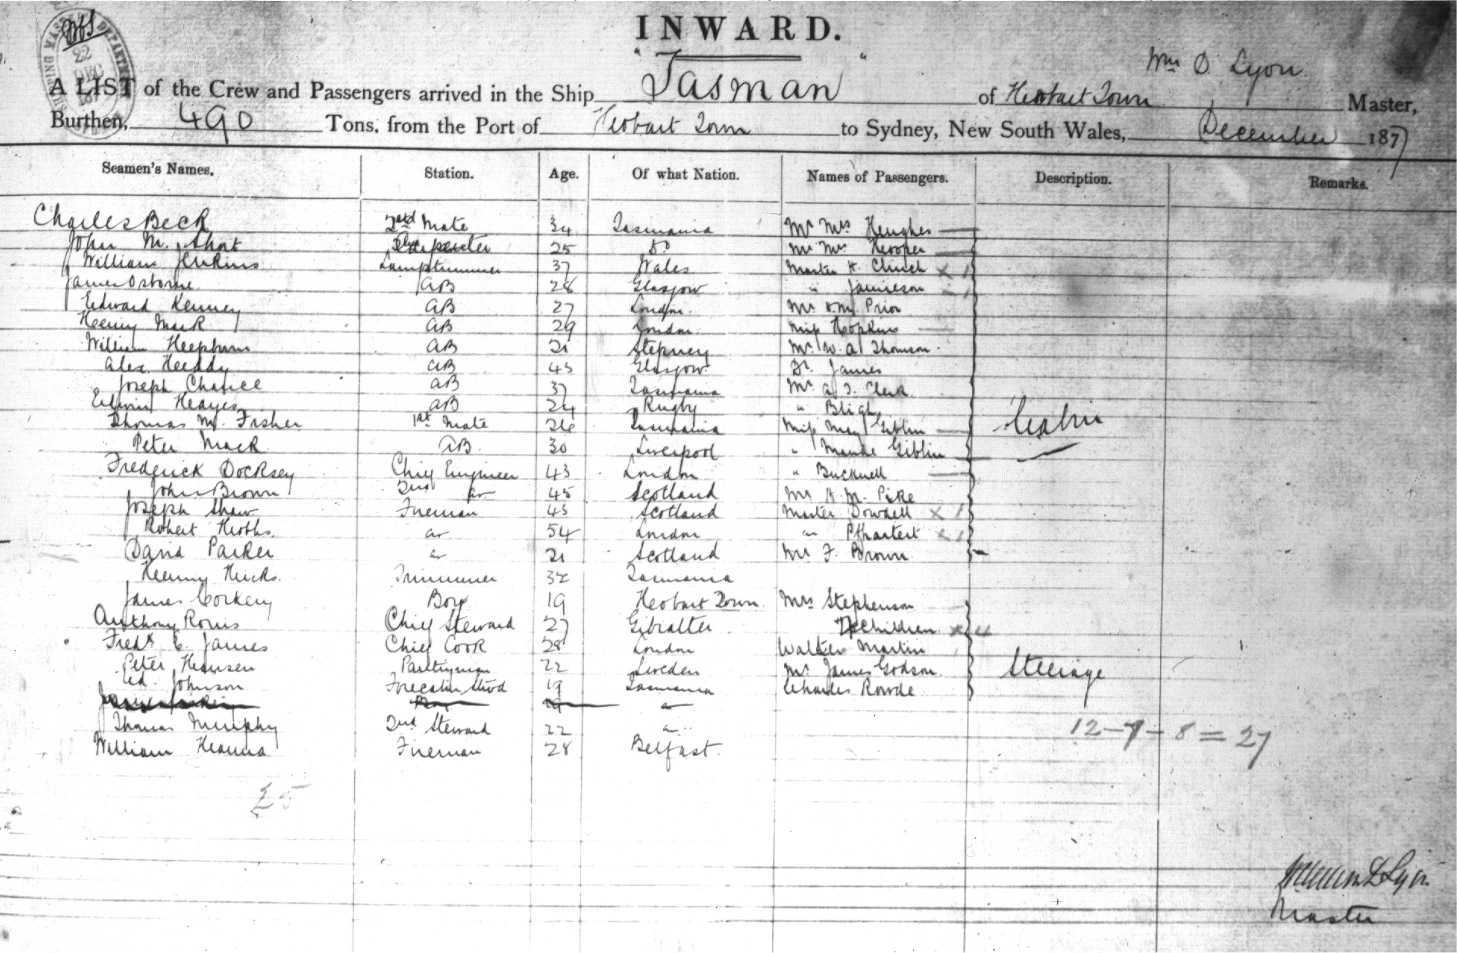 INWARD.
22
DEC
Wm D. Lyon
A LIST of the Crew and Passengers arrived in the Ship "Tasman" of Hobart Town Master,
Burthen, 490 Tons, from the Port of Hobart Town to Sydney, New South Wales, December 1877
Seamen's Names. Station. Age. Of what Nation. Names of Passengers. Description. Remarks.
Charles Beck 2nd Mate 34 Tasmania Mr Mrs Hughes
John M. Short 25 Do Mr Mrs Hooper
William Jenkins Lamptrimmer 37 Wales Master H. Church x 1
James Osborne AB 28 Glasgow " Jamieson
Edward Kenney AB 27 London Mr Prior
Henry Mark AB 29 London Miss Hopkins
William Hepburn AB 21 Stepney Mr W. A. Thomson
Alex Heddy AB 45 Glasgow Dr. James
Joseph Chance AB 37 Tasmania Mr A. J. Clark
Edwin Heayes AB 24 Rugby " Bligh
Thomas M. Fisher 1st Mate 26 Tasmania Miss May Giblin Cabin
Peter Mack AB 30 Liverpool " Maude Giblin
Frederick Docksey Chief Engineer 43 London " Bucknell
John Brown 2nd do 45 Scotland Mr H. M. Pike
Joseph Shaw Fireman 45 Scotland Master Dowdell x 1
Robert Hobbs do 54 London " x 1
David Parker do 21 Scotland Mr F. Brown
Henry Hicks Trimmer 32 Tasmania
James Corkery Boy 19 Hobart Town Mrs Stephenson
Anthony Romis Chief Steward 27 Gibralter Children x 4
Fredk E. James Chief Cook 28 London Walter Martin
Peter Hansen Pantryman 22 Sweden Mr James Godson Steerage
Ed. Johnson Forecabin Stwd 19 Tasmania Charles Rowde
Thomas Murphy 2nd Steward 22 do
12 - 7 - 8 = 27
William Hanna Fireman 28 Belfast
25
William D Lyon
Master